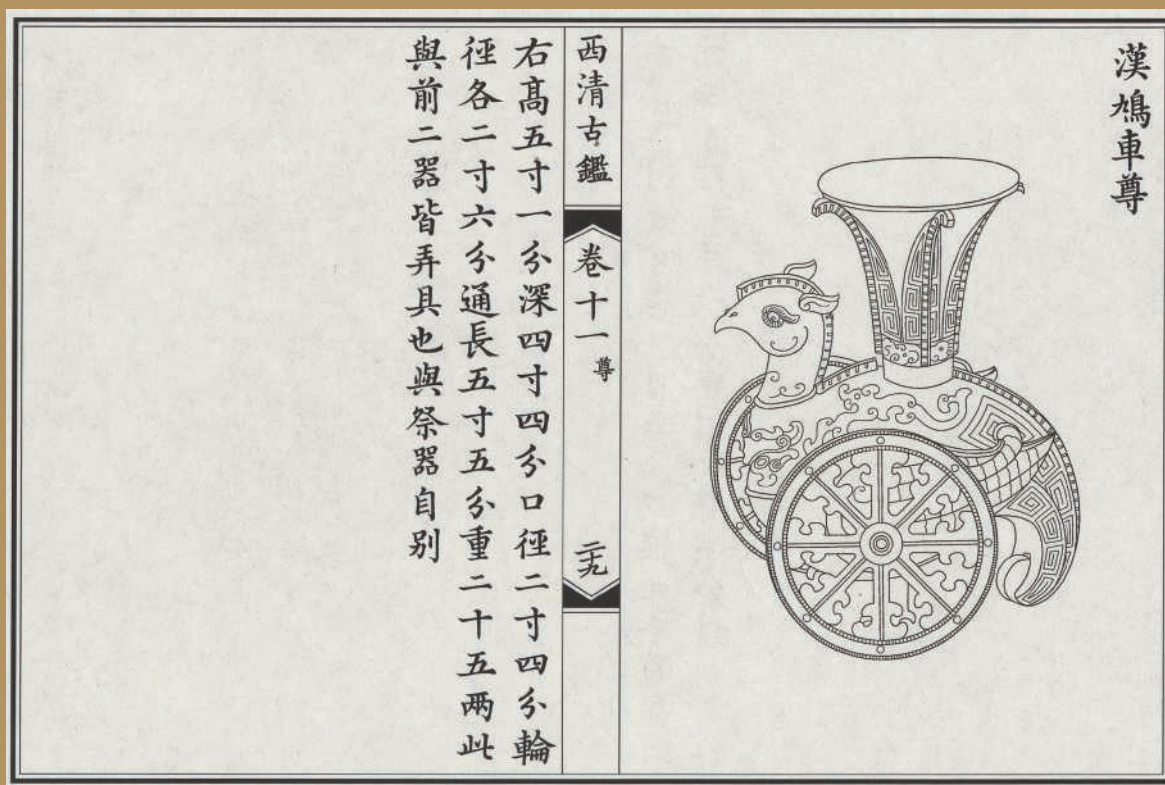 漢鳩車尊
西清古鑑
卷十一 尊
二九
右高五寸一分深四寸四分口徑二寸四分輪
徑各二寸六分通長五寸五分重二十五兩此
與前二器皆弄具也與祭器自别